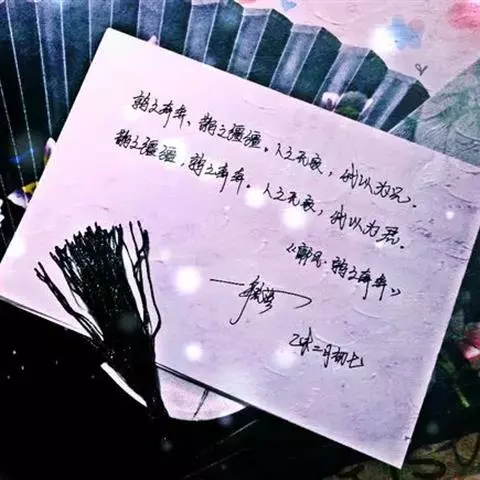 鹑之奔奔、鹊之疆疆。人之无良，我以为兄.
鹊之疆疆，鹑之奔奔。人之无良，我以为君.
《鄘风·鹑之奔奔》
乙未二月初七